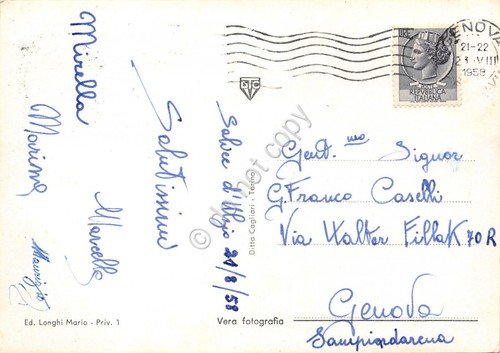 GENOVA
21-22
23·VIII
1958
POSTE
REPVBBLICA
ITALIANA
STC
Mirella
Marisa
Salutissimi
Marcella
Maurizio
Salice d'Ulzio 21/8/58
Gent.mo Signor
G. Franco Caselli
Via Walter Fillak 70 R
Genova
Sampierdarena
Ditta Cagliari - Torino
Ed. Longhi Mario - Priv. 1
Vera fotografia
do not copy